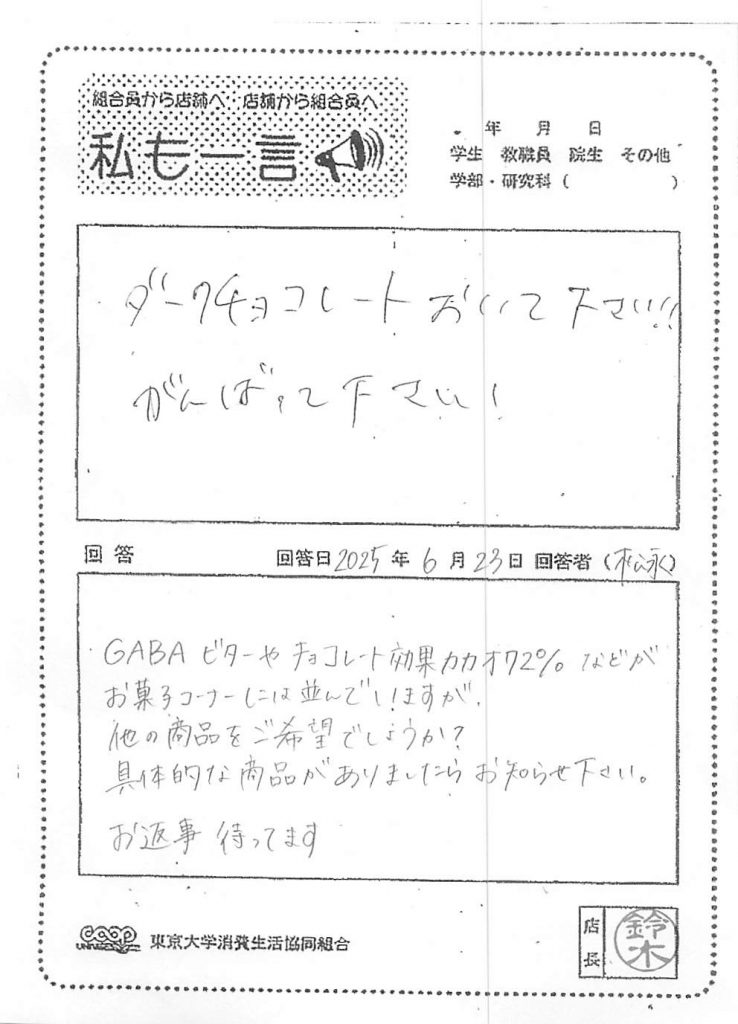 組合員から店舗へ・店舗から組合員へ
私も一言
年 月 日
学生 教職員 院生 その他
学部・研究科( )
ダークチョコレートおいて下さい!!
がんばって下さい!
回答 回答日2025年6月23日 回答者(松永)
GABAビターやチョコレート効果カカオ72%などが
お菓子コーナーには並んでいますが、
他の商品をご希望でしょうか?
具体的な商品がありましたらお知らせ下さい。
お返事待ってます
coop
UNIVERSITY
東京大学消費生活協同組合
店長
鈴木